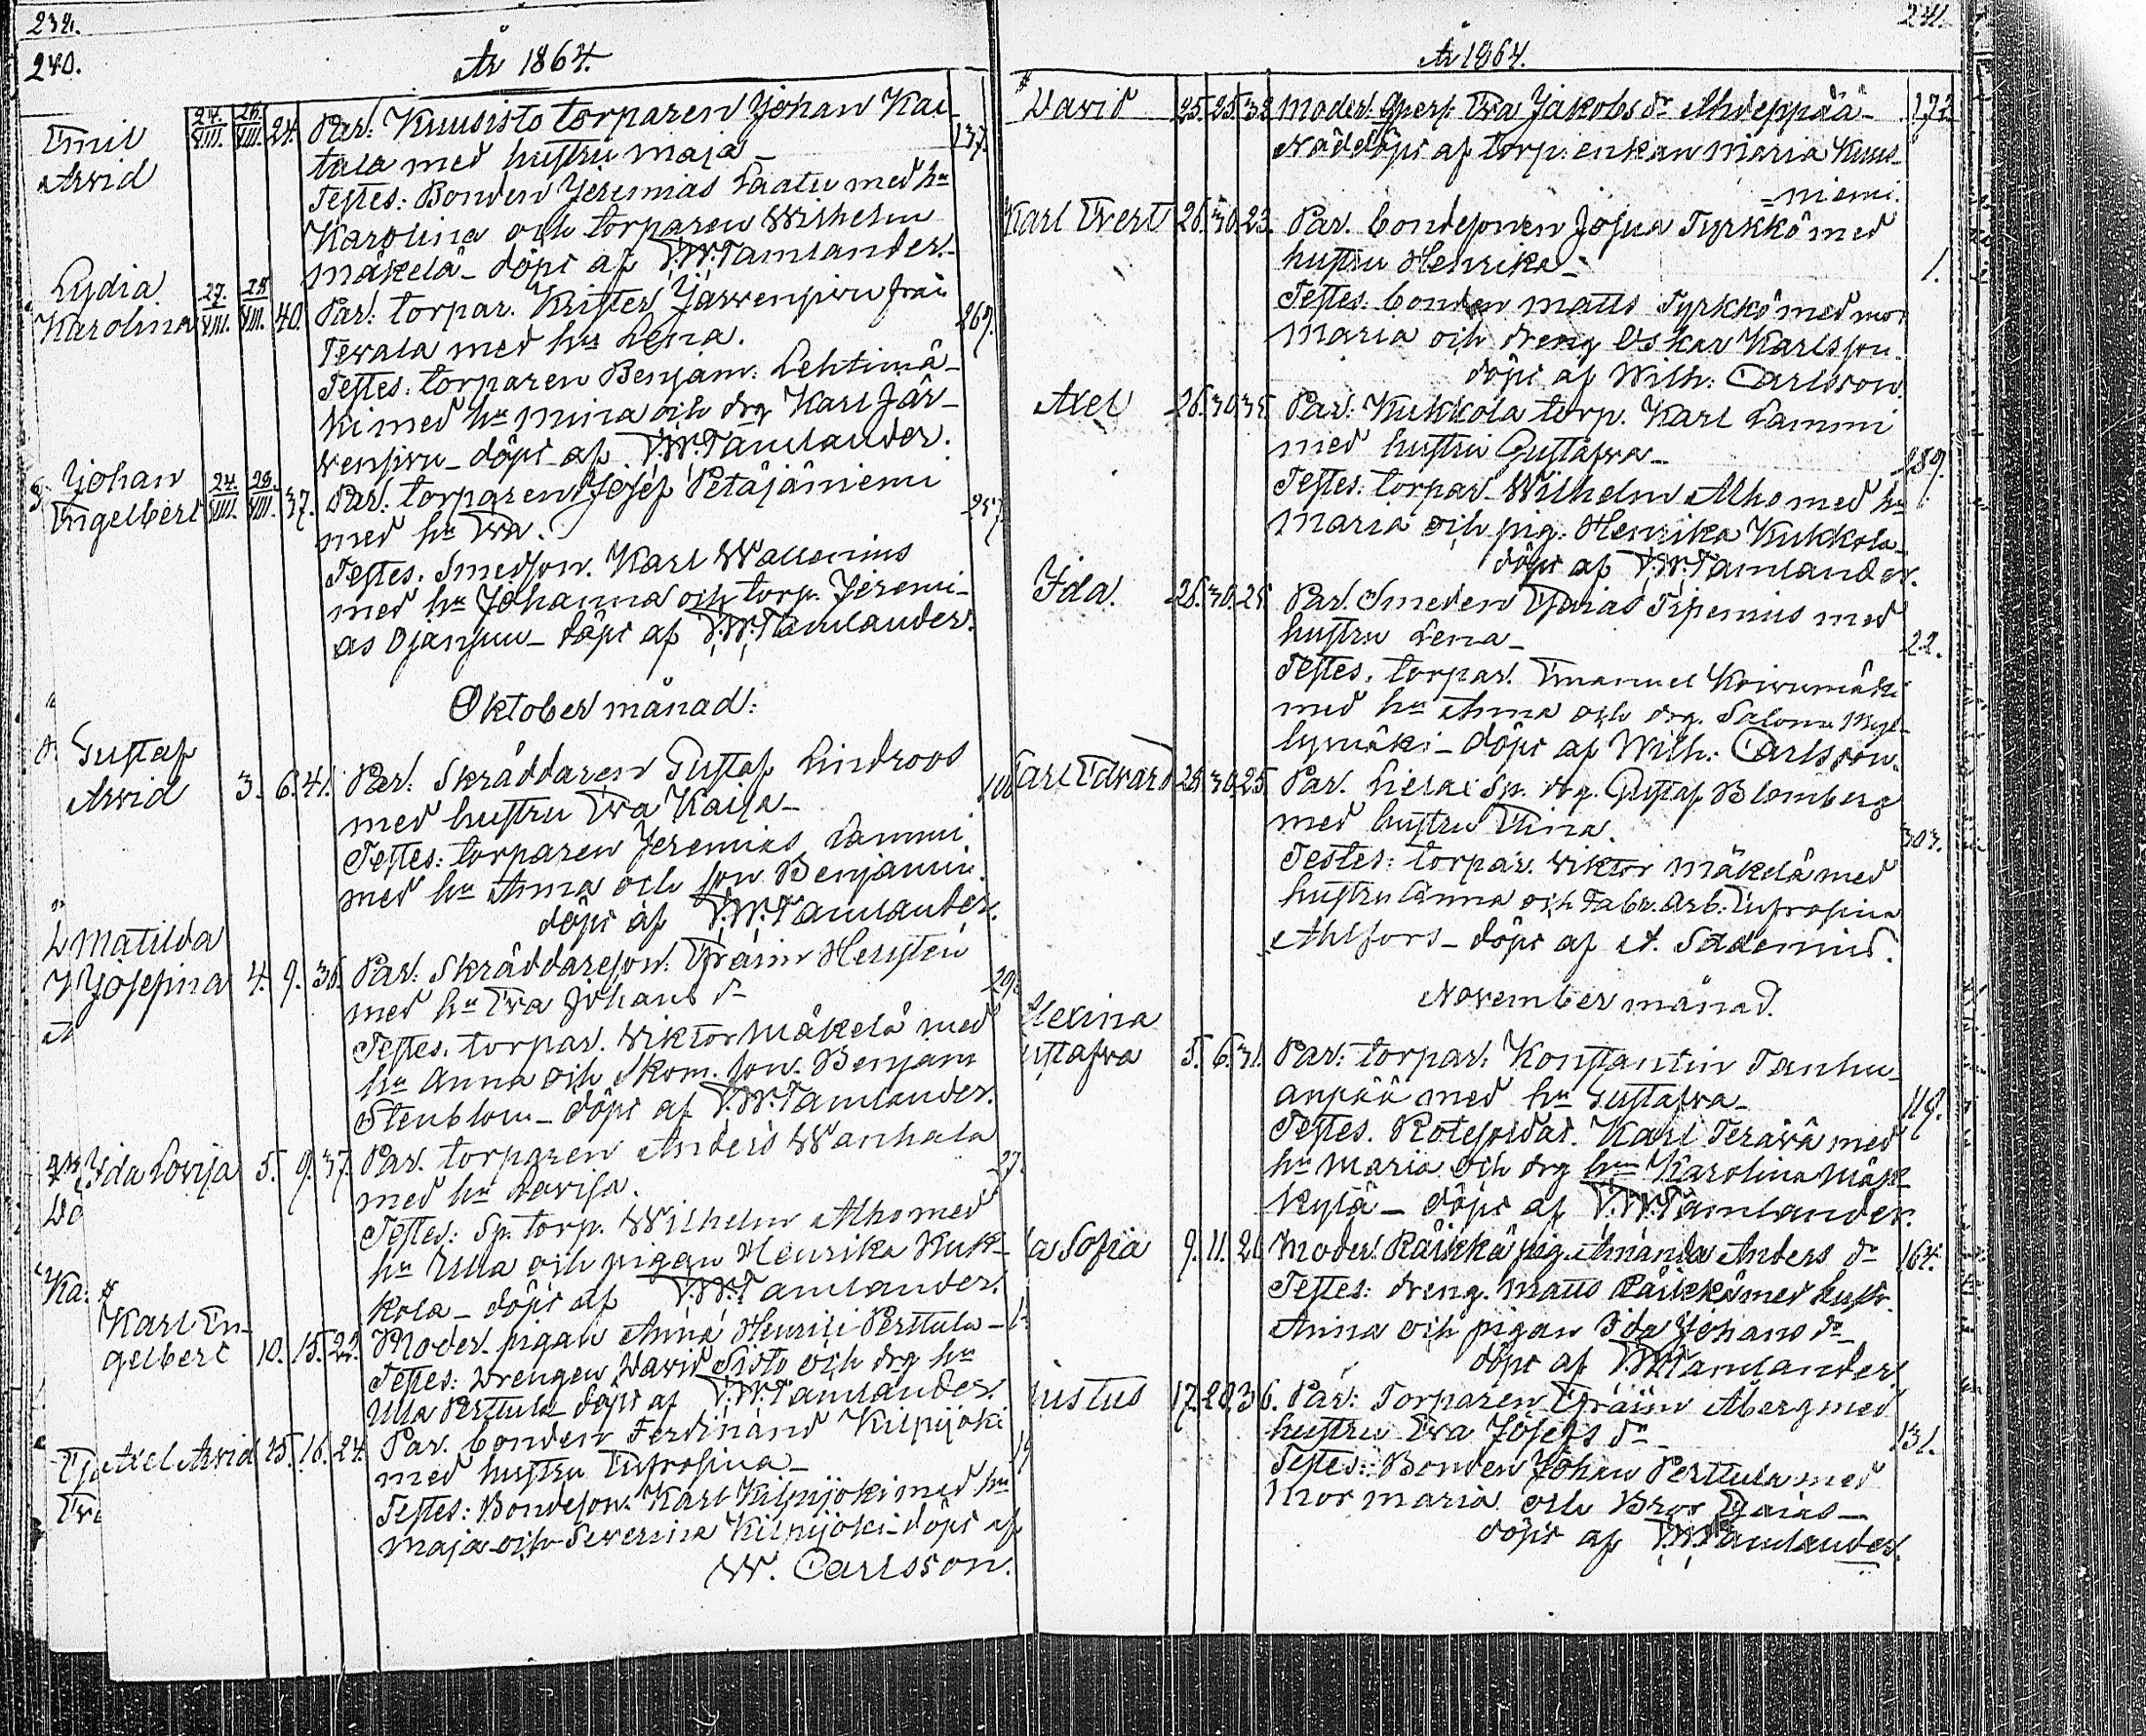 239.
240.
År 1864.
Emil Arvid 24./VIII. 28./VIII. 24. Par: Kuusisto torparen Johan Kai-
tala med hustru Maja— 137.
Testes: Bonden Jeremias Laatu med hu
Karolina och torparen Wilhelm
Mäkelä— döpt af F.W. Tamlander.—
Lydia Karolina 27./VIII. 28./VIII. 40. Par: torpar. Krister Järvensivu från
Tevala med hu Lena. 269.
Testes: torparen Benjam: Lehtimä-
ki med hu Mina och drg Karl Jär-
vensivu— döpt af F.W. Tamlander.
Johan Engelbert 24./VIII. 28./VIII. 37. Par: torparen Josef Petäjäniemi
med hu Eva. 257
Testes. Smedson. Karl Wallenius
med hu Johanna och torp. Jeremi-
as Ojansuu— döpt af F.W. Tamlander.
Oktober månad:
Gustaf Arvid 3. 6. 41. Par: Skräddaren Gustaf Lindroos
med hustru Eva Kaisa—
Testes: torparen Jeremias Lammi
med hu Anna och son Benjamin.
döpt af F.W. Tamlander.
Matilda Josefina 4. 9. 36. Par: Skräddareson: Efraim Hellstén
med hu Eva Johans dr
Testes. torpar. Wiktor Mäkelä med
hu Anna och Skom. son. Benjam
Stenblom— döpt af F.W. Tamlander.
Ida Lovisa 5. 9. 37. Par. torparen Anders Wanhala
med hu Lovisa.
Testes: Sp. torp. Wilhelm Alho med
hu Ulla och pigan Henrika Kuk-
kola— döpt af F.W. Tamlander.
Karl En-
gelbert 10. 15. 22. Moder. pigan Anna Henrici Perttula—
Testes: Drengen David Sisto och drg hu
Ulla Perttula döpt af F.W. Tamlander.
Axel Arvid 15. 16. 24. Par. bonden Ferdinand Kilpijoki
med hustru Eufrosina—
Testes: Bondeson. Karl Kilpijoki med hu
Maja och Severina Kilpijoki— döpt af
W. Carlsson.
241.
År 1864.
David 25. 25. 32. Moder. Eva Jakobs dr Ahdeppää— 172.
Nöddöpt af torp. enkan Maria Kuus-
=niemi.
Karl Evert 26. 30. 23. Par. bondesonen Josua Tyrkkö med
hustru Henrika— 1.
Testes: bonden Matts Tyrkkö med mor
Maria och dreng Oskar Karlsson.
döpt af Wilh: Carlsson.
Axel 26. 30. 35. Par: Kukkola torp. Karl Lammi
med hustru Gustafva— 189.
Testes: torpar. Wilhelm Alho med hu
Maria och pig. Henrika Kukkola—
döpt af F.W. Tamlander.
Ida. 26. 30. 25. Par. Smeden Esaias Sipenius med
hustru Lena— 22.
Testes. torpar. Emanuel Koivumäki
med hu Anna och drg. Salomo Myl-
lymäki— döpt af Wilh: Carlsson.
Carl Edvard 25. 30. 25. Par. Sp. drg. Gustaf Blomberg
med hustru Stina. 303.
Testes: torpar. Viktor Mäkelä med
hustru Anna och Fabr. arb. Eufrosina
Ahlfors— döpt af A. Sadenius.
November månad.
Alexina
Gustafva 5. 6. 31. Par: torpar. Konstantin Tanhu-
anpää med hu Gustafva— 119.
Testes. Rotesoldat. Karl Terävä med
hu Maria och drg hu Karolina Mäk-
kylä— döpt af F.W. Tamlander.
Sofia 9. 11. 20. Moder. Räikkä pig. Amanda Anders dr 164.
Testes: dreng. Matts Räikkä med hustr.
Anna och pigan Ida Johans dr—
döpt af F.W. Tamlander.
Justus 17. 20. 36. Par: Torparen Efraim Åberg med
hustru Eva Josefs dr— 131.
Testes: Bonden Johan Perttula med
Mor Maria och Bror Esaias—
döpt af F.W. Tamlander.